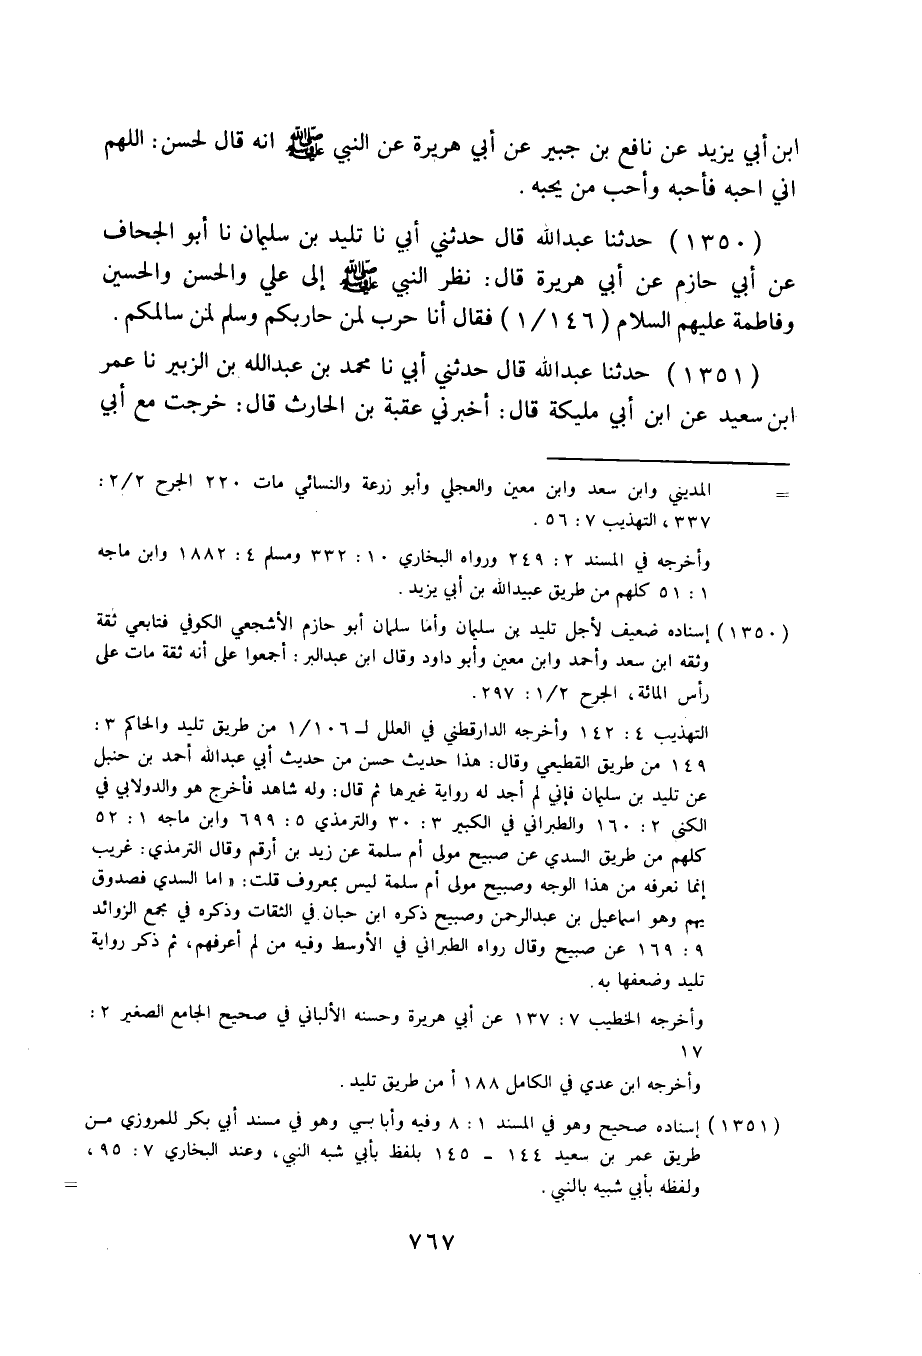 ابن أبي يزيد عن نافع بن جبير عن أبي هريرة عن النبي ﷺ انه قال لحسن: اللهم
اني احبه فأحبه وأحب من يحبه .
(١٣٥٠) حدثنا عبدالله قال حدثني أبي نا تليد بن سليمان نا أبو الجحاف
عن أبي حازم عن أبي هريرة قال: نظر النبي ﷺ إلى علي والحسن والحسين
وفاطمة عليهم السلام (١/١٤٦) فقال أنا حرب لمن حاربكم وسلم لمن سالمكم .
(١٣٥١) حدثنا عبدالله قال حدثني أبي نا محمد بن عبدالله بن الزبير نا عمر
ابن سعيد عن ابن أبي مليكة قال: أخبرني عقبة بن الحارث قال: خرجت مع أبي
= المديني وابن سعد وابن معين والعجلي وأبو زرعة والنسائي مات ٢٢٠ الجرح ٢/٢:
٣٣٧، التهذيب ٧: ٥٦ .
وأخرجه في المسند ٢: ٢٤٩ ورواه البخاري ١٠: ٣٣٢ ومسلم ٤: ١٨٨٢ وابن ماجه
١: ٥١ كلهم من طريق عبيدالله بن أبي يزيد .
(١٣٥٠) إسناده ضعيف لأجل تليد بن سليمان وأما سلمان أبو حازم الأشجعي الكوفي فتابعي ثقة
وثقه ابن سعد وأحمد وابن معين وأبو داود وقال ابن عبدالبر: أجمعوا على أنه ثقة مات على
رأس المائة، الجرح ١/٢: ٢٩٧.
التهذيب ٤: ١٤٢ وأخرجه الدارقطني في العلل لـ ١/١٠٦ من طريق تليد والحاكم ٣:
١٤٩ من طريق القطيعي وقال: هذا حديث حسن من حديث أبي عبدالله أحمد بن حنبل
عن تليد بن سليمان فإني لم أجد له رواية غيرها ثم قال: وله شاهد فأخرج هو والدولابي في
الكنى ٢: ١٦٠ والطبراني في الكبير ٣: ٣٠ والترمذي ٥: ٦٩٩ وابن ماجه ١: ٥٢
كلهم من طريق السدي عن صبيح مولى أم سلمة عن زيد بن أرقم وقال الترمذي: غريب
إنما نعرفه من هذا الوجه وصبيح مولى أم سلمة ليس بمعروف قلت: « اما السدي فصدوق
يهم وهو اسماعيل بن عبدالرحمن وصبيح ذكره ابن حبان في الثقات وذكره في مجمع الزوائد
٩: ١٦٩ عن صبيح وقال رواه الطبراني في الأوسط وفيه من لم أعرفهم، ثم ذكر رواية
تليد وضعفها به.
وأخرجه الخطيب ٧: ١٣٧ عن أبي هريرة وحسنه الألباني في صحيح الجامع الصغير ٢:
١٧
وأخرجه ابن عدي في الكامل ١٨٨ أ من طريق تليد .
(١٣٥١) إسناده صحيح وهو في المسند ١: ٨ وفيه وأبابي وهو في مسند أبي بكر للمروزي مـن
طريق عمر بن سعيد ١٤٤ - ١٤٥ بلفظ بأبي شبه النبي، وعند البخاري ٧: ٩٥،
ولفظه بأبي شبيه بالنبي . =
٧٦٧